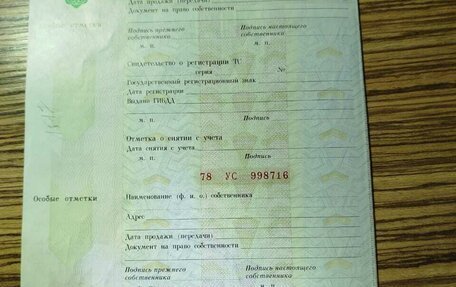 Дата продажи (передачи)
Документ на право собственности
Подпись прежнего собственника
Подпись настоящего собственника
м. п.
м. п.
Свидетельство о регистрации ТС
серия №
Государственный регистрационный знак
Дата регистрации
Выдано ГИБДД
м. п. Подпись
Отметка о снятии с учета
Дата снятия с учета
м. п. Подпись
78 УС 998716
Особые отметки
Наименование (ф. и. о.) собственника
Адрес
Дата продажи (передачи)
Документ на право собственности
Подпись прежнего собственника
Подпись настоящего собственника